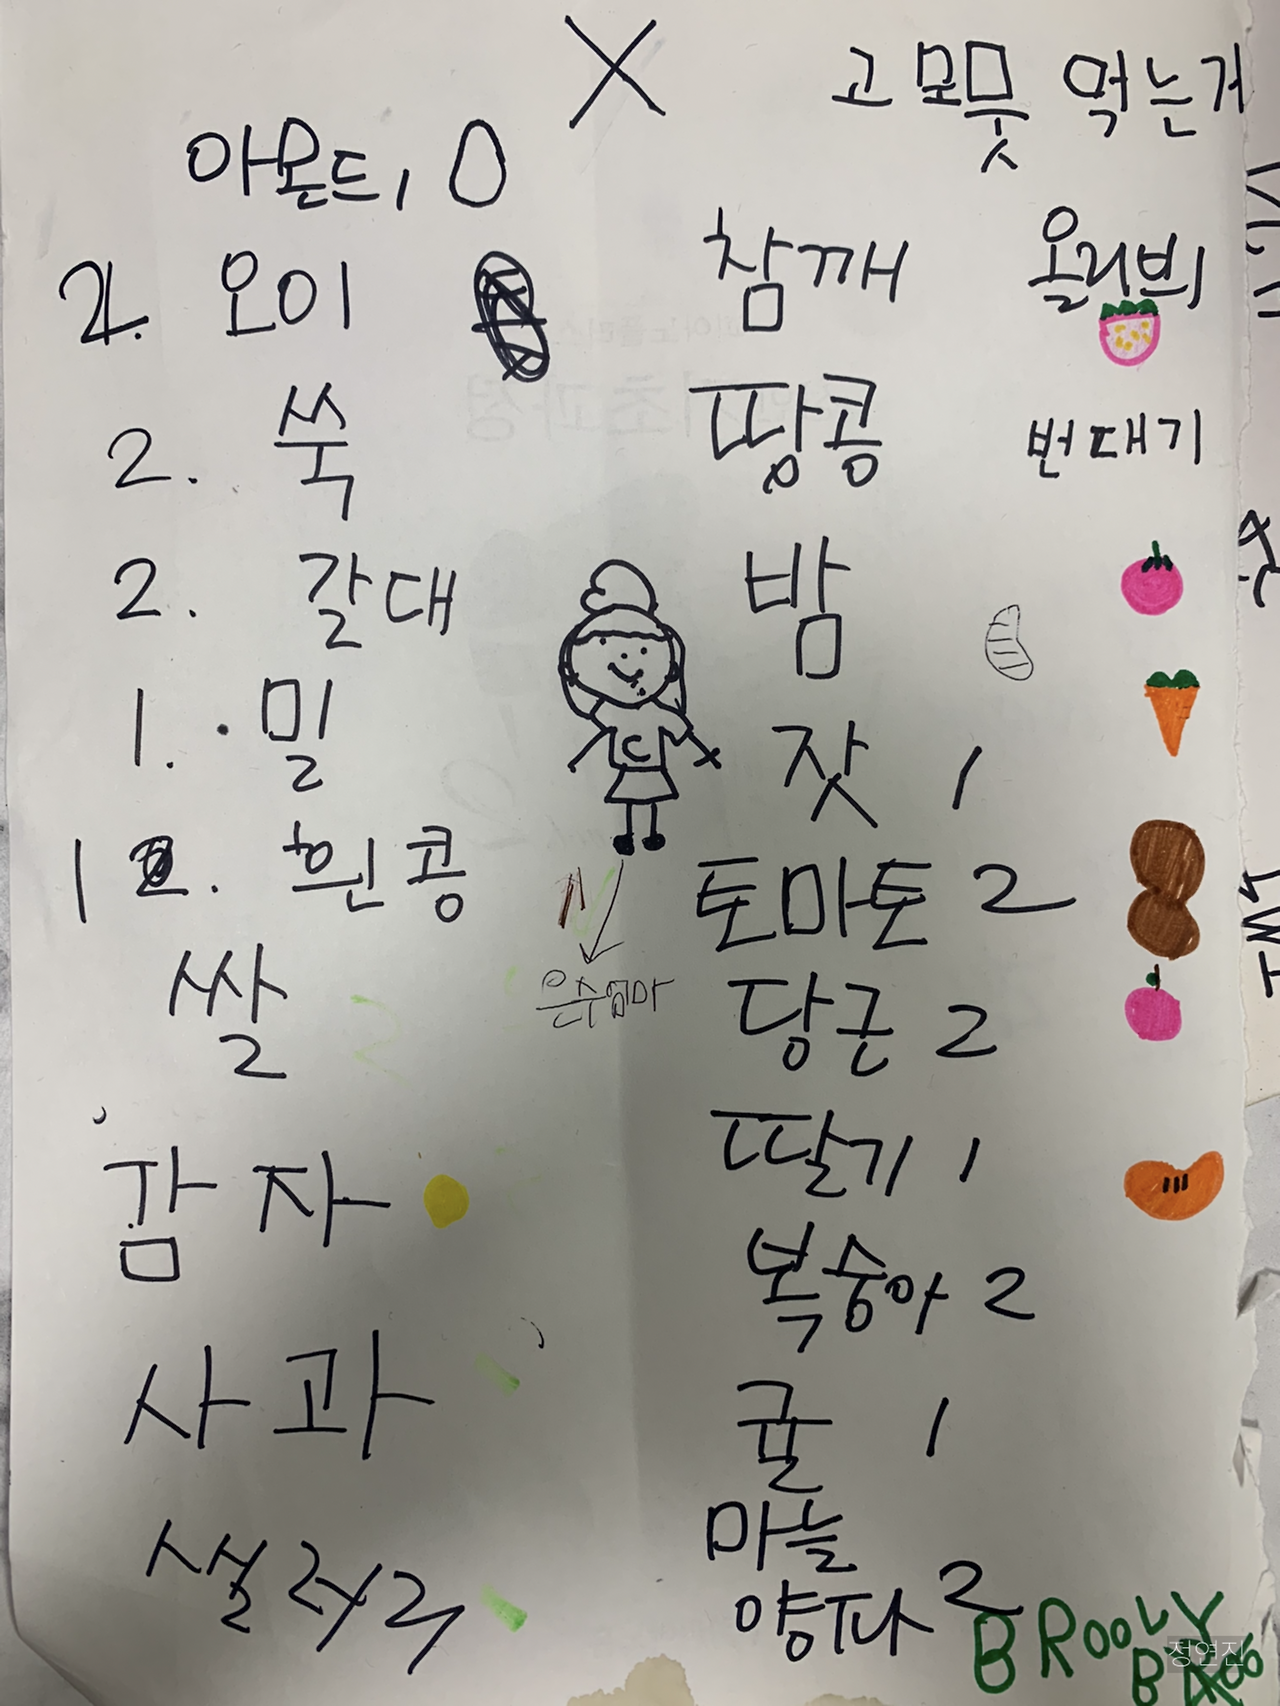 X
고모 못 먹는거
아몬드, 0
2. 오이
2. 쑥
2. 갈대
1. 밀
1 2. 흰콩
쌀
2
감자
사과
샐러리
은수엄마
참깨
땅콩
밤
잣 1
토마토 2
당근 2
딸기 1
복숭아 2
귤 1
마늘
양파 2
올리브
번대기
BROOLY
정연진